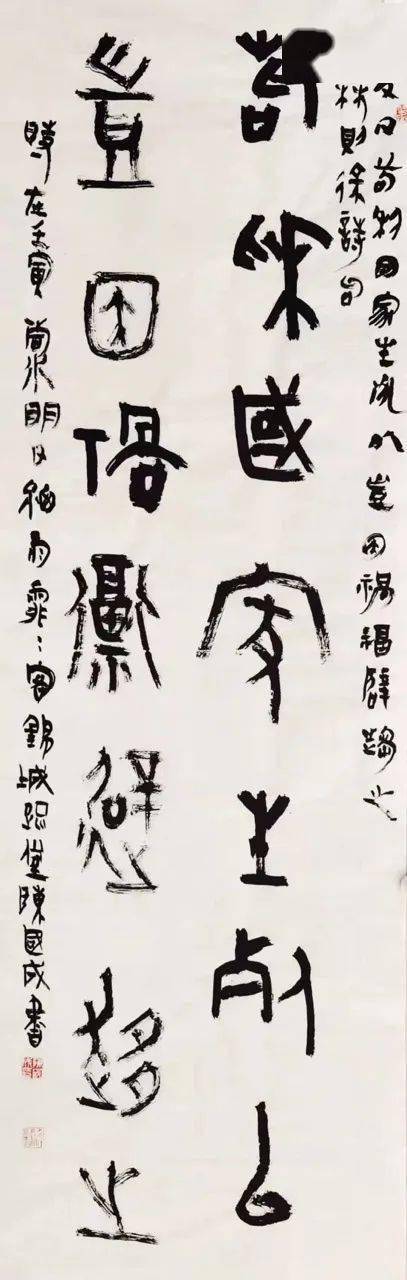 文曰苟利國家生死以豈因禍福避趨之
林則徐詩句
苟利國家生死以
豈因禍福避趨之
時在壬寅 明日 雨霏霏 錦城 陳國成書